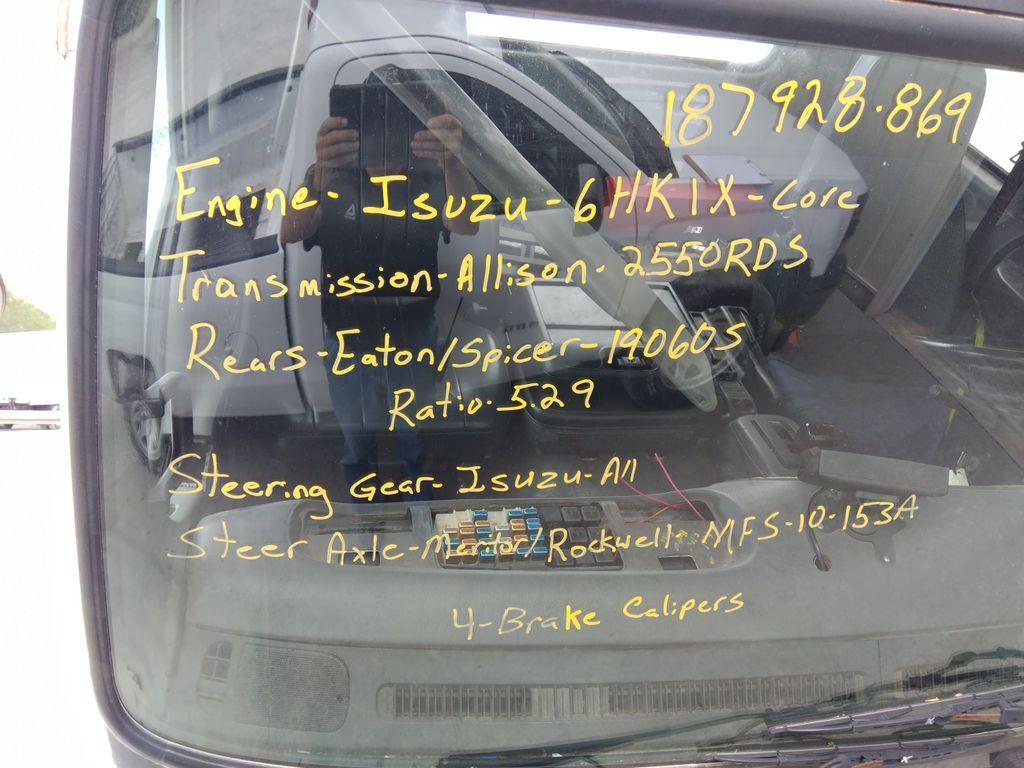 187928.869
Engine- Isuzu-6HK1X-Core
Transmission-Allison-2550RDS
Rears-Eaton/Spicer-19060S
Ratio.529
Steering Gear- Isuzu-All
Steer Axle-Meritor/Rockwell-MFS-10-153A
4-Brake Calipers